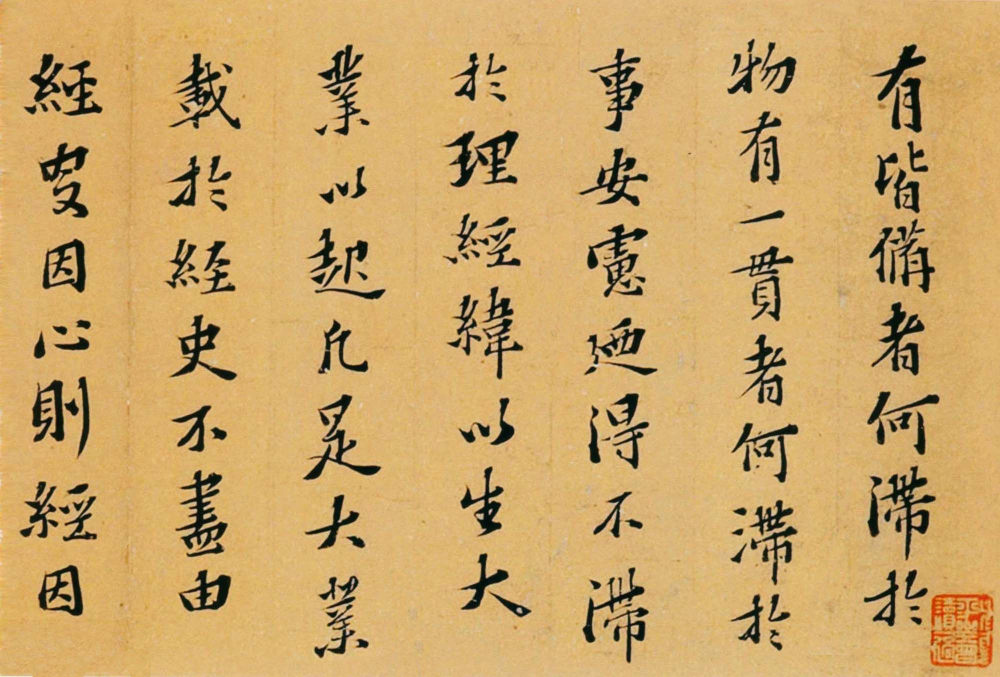 有皆備者何滯於
物有一貫者何滯於
事安慮迺得不滯
於理經緯以生大
業以起凡是大業
載於經史不盡由
經因心則經因